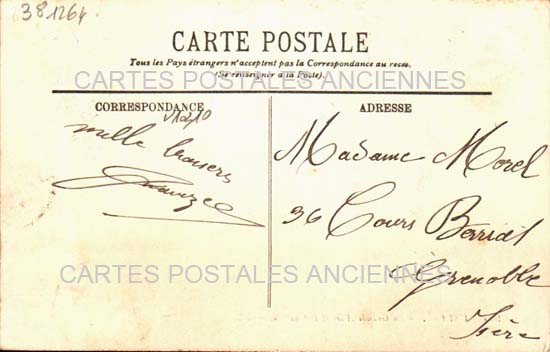 381264
CARTE POSTALE
Tous les Pays étrangers n'acceptent pas la Correspondance au recto.
(Se renseigner à la Poste).
CARTES POSTALES ANCIENNES
CORRESPONDANCE
mille baisers
ADRESSE
Madame Morel
36 Cours Berriat
Grenoble
Isère
CARTES POSTALES ANCIENNES